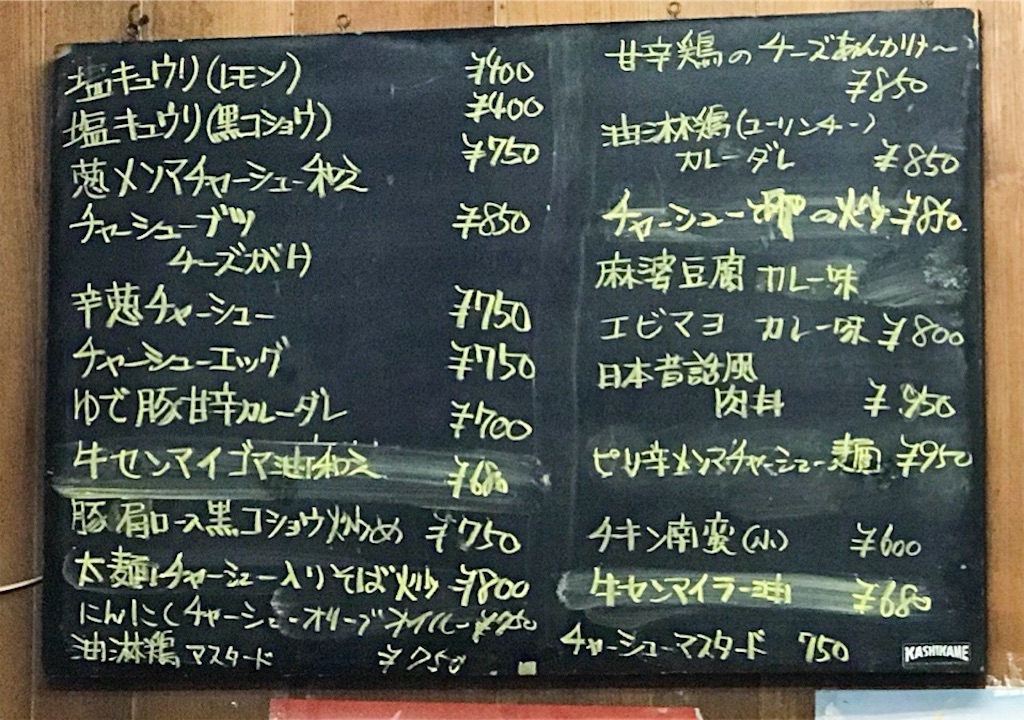 塩キュウリ(レモン) ¥400
塩キュウリ(黒コショウ) ¥400
葱メンマチャーシュー和え ¥750
チャーシューブツ ¥850
チーズがけ
辛葱チャーシュー ¥750
チャーシューエッグ ¥750
ゆで豚甘辛カレーダレ ¥700
牛センマイゴマ油和え ¥680
豚肩ロース黒コショウ炒め ¥750
太麺チャーシュー入りそば炒 ¥800
にんにくチャーシューオリーブオイル ¥750
油淋鶏マスタード ¥750
甘辛鶏のチーズあんかけ〜
¥850
油淋鶏(ユーリンチー)
カレーダレ ¥850
チャーシュー卵の炒 ¥850
麻婆豆腐 カレー味
エビマヨ カレー味 ¥800
日本昔話風
肉丼 ¥950
ピリ辛メンマチャーシュー麺 ¥950
チキン南蛮(小) ¥600
牛センマイラー油 ¥680
チャーシューマスタード 750
KASHIKAME